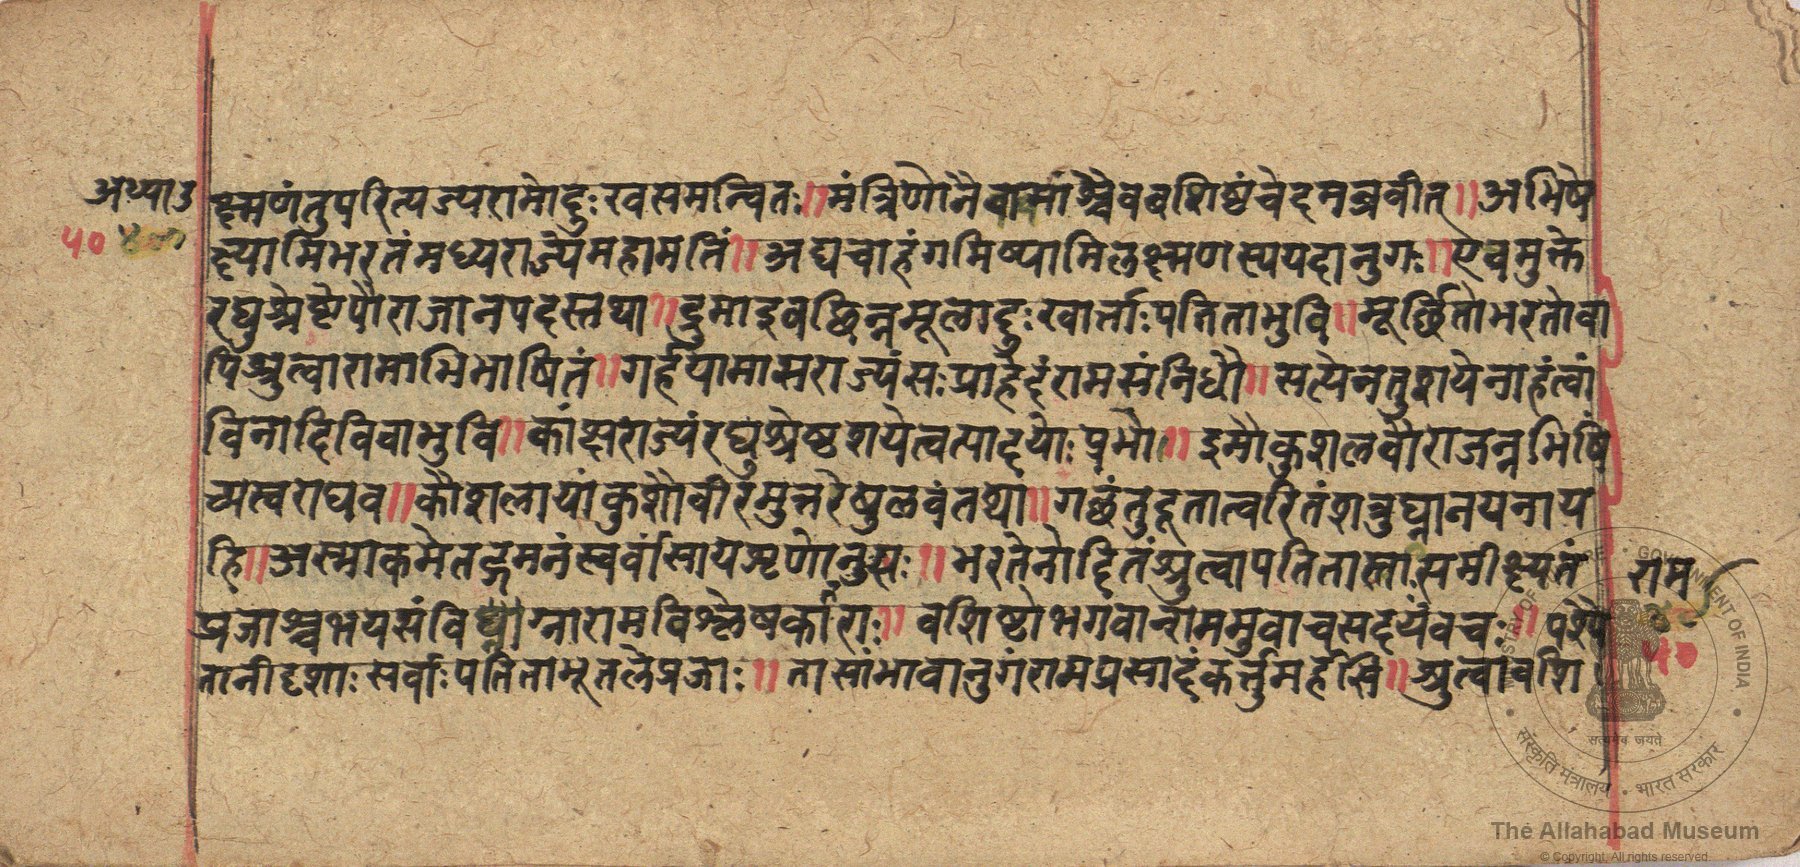 अध्या उ
५०
क्ष्मणंतुपरित्यज्यरामोदुःखसमन्वितः॥मंत्रिणोनैगमांश्चैववशिष्ठंचेदमब्रवीत्॥अभिषे
क्ष्यामिभरतंमध्यराज्येमहामतिं॥अद्यचाहंगमिष्यामिलक्ष्मणस्यपदानुगः॥एवमुक्ते
रघुश्रेष्टेपौराजानपदस्तथा॥द्रुमाइवछिन्नमूलादुःखार्त्ताःपतिताभुवि॥मूर्छितोभरतोवा
पिश्रुत्वारामाभिभाषितं॥गर्हयामासराज्यंसःप्राहेदंरामसंनिधौ॥सत्येनतुशयेनाहंत्वां
विनादिविवाभुवि॥कांक्षेराज्यंरघुश्रेष्ठशयेत्वत्पादयोःप्रभो॥इमौकुशलवौराजन्नभिषिं
च्यत्वराघव॥कोशलायांकुशंवीरमुत्तरेषुलवंतथा॥गछंतुदूतात्वरितंशत्रुघ्नानयनाय
हि॥अस्माकमेतद्गमनंस्वर्वासायशृणोनुसः॥भरतेनोदितंश्रुत्वापतितास्ताःसमीक्ष्यतं
प्रजाश्चभयसंविग्नारामविश्लेषकातराः॥वशिष्टोभगवान्राममुवाचसदयंवचः॥पश्यै
तानीदृशाःसर्वाःपतिताभूतलेप्रजाः॥तासांभावानुगंरामप्रसादंकर्त्तुमर्हसि॥श्रुत्वावशि
राम
५०
MINISTRY OF CULTURE • GOVERNMENT OF INDIA
सत्यमेव जयते
संस्कृति मंत्रालय • भारत सरकार
The Allahabad Museum
© Copyright, All rights reserved.